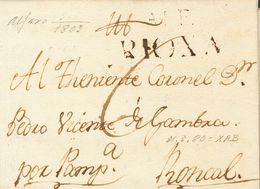 Alfaro
1803
RIOXA
Al Theniente Coronel Dn
Pedro Vicente de Gambra
por Pampa Roncal.